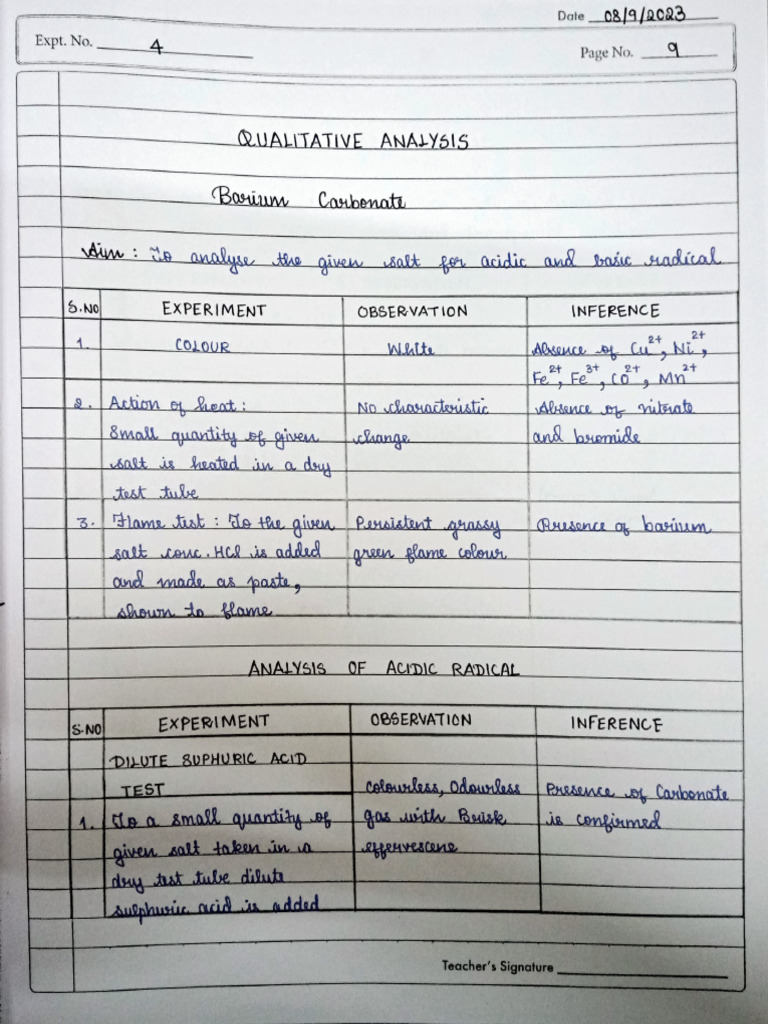 Date 08/9/2023
Expt. No. 4
Page No. 9
QUALITATIVE ANALYSIS
Barium Carbonate
Aim : To analyse the given salt for acidic and basic radical
S.NO EXPERIMENT OBSERVATION INFERENCE
1. COLOUR White Absence of Cu²⁺, Ni²⁺,
Fe²⁺, Fe³⁺, CO²⁺, Mn²⁺
2. Action of heat : No characteristic Absence of nitrate
Small quantity of given change and bromide
salt is heated in a dry
test tube
3. Flame test : To the given Persistent grassy Presence of barium
salt conc. HCl is added green flame colour
and made as paste,
shown to flame
ANALYSIS OF ACIDIC RADICAL
S.NO EXPERIMENT OBSERVATION INFERENCE
DILUTE SUPHURIC ACID
TEST Colourless, Odourless Presence of Carbonate
1. To a small quantity of gas with Brisk is confirmed
given salt taken in a effervescene
dry test tube dilute
sulphuric acid is added
Teacher's Signature